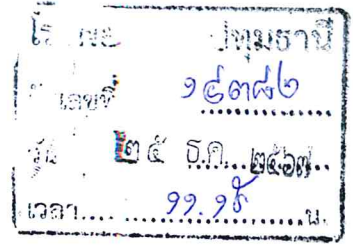 ปทุมธานี
เลขที่ ๑๙๓๘๒
๒๕ ธ.ค. ๒๕๖๗
เวลา ๑๑.๑๕ น.